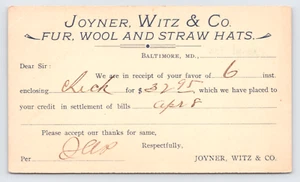 JOYNER, WITZ & CO.
FUR, WOOL AND STRAW HATS.
BALTIMORE, MD.,
Dear Sir:
We are in receipt of your favor of 6 inst.
enclosing Check for $3295 which we have placed to
your credit in settlement of bills Apr 8
Please accept our thanks for same,
Respectfully,
Per JOYNER, WITZ & CO.